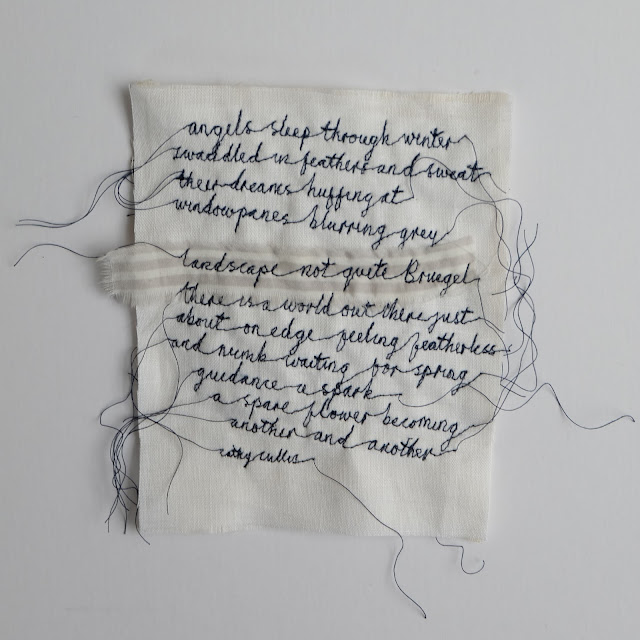 angels sleep through winter
swaddled in feathers and sweat
their dreams huffing at
windowpanes blurring grey
landscape not quite Bruegel
there is a world out there just
about on edge feeling featherless
and numb waiting for spring
guidance a spark
a spare flower becoming
another and another
cathy cullis